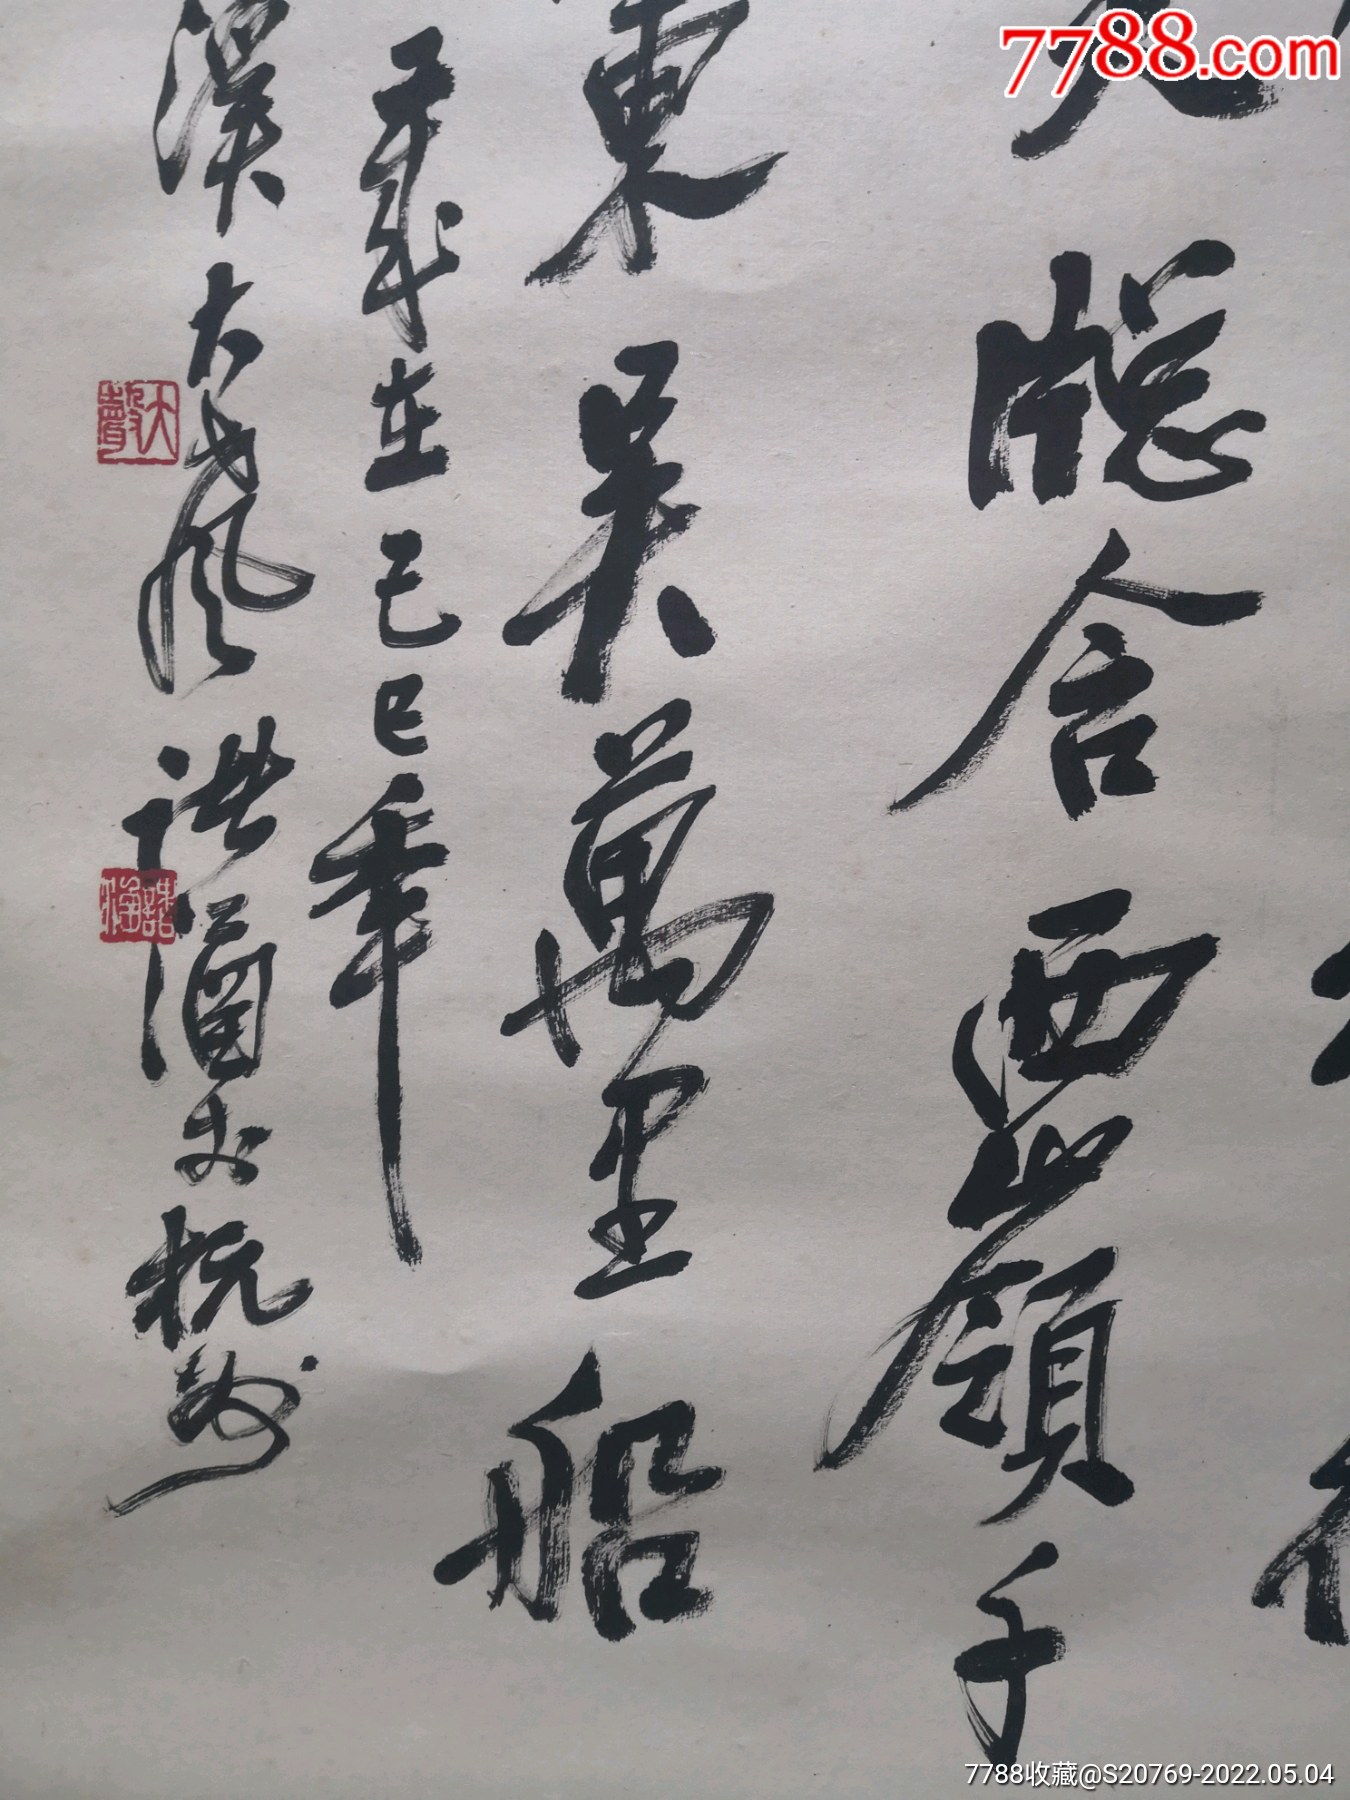 7788.com
天
牕含西嶺千
東吳萬里船
歲在己巳年
漢大風
堂
酒
杭州
7788收藏@S20769-2022.05.04